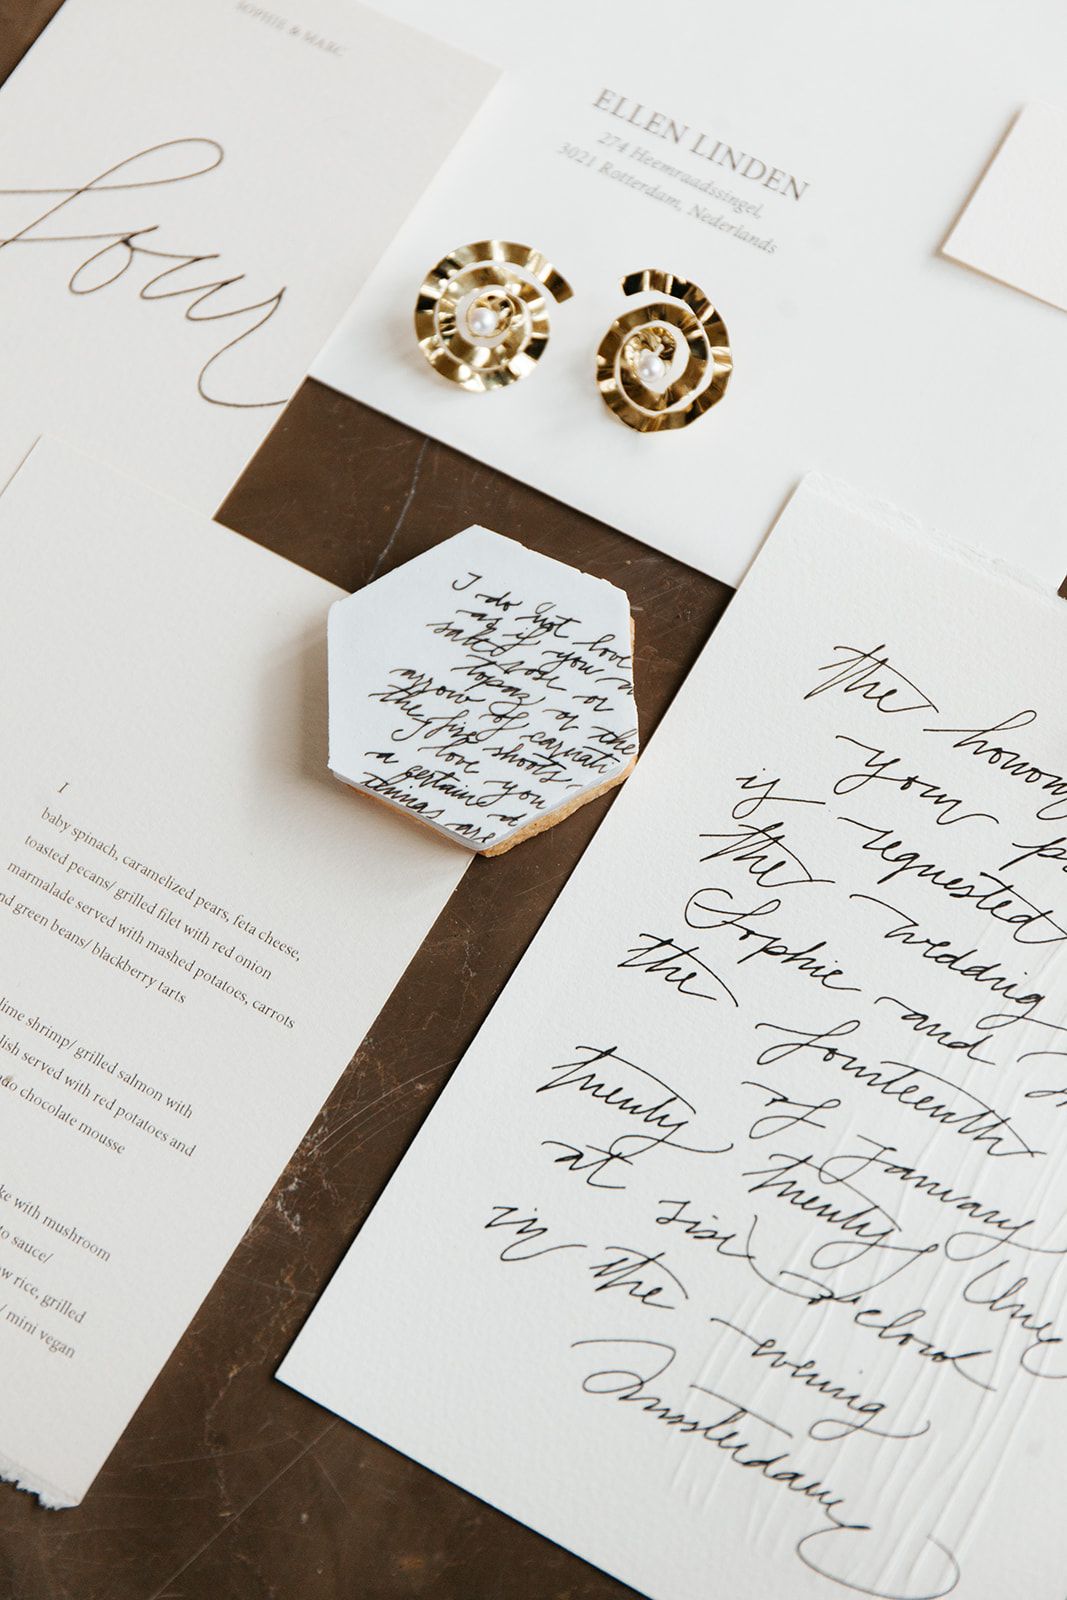 SOPHIE & MARC
four
ELLEN LINDEN
274 Heemraadssingel,
3021 Rotterdam, Nederlands
I do not love
as if you
salt rose or
topaz, or the
arrow of carnati
the fire shoots
love you
a certain d
things are
I
baby spinach, caramelized pears, feta cheese,
toasted pecans/ grilled filet with red onion
marmalade served with mashed potatoes, carrots
nd green beans/ blackberry tarts
lime shrimp/ grilled salmon with
lish served with red potatoes and
do chocolate mousse
ke with mushroom
to sauce/
w rice, grilled
/ mini vegan
the honour
your p
is requested
the wedding
Sophie and
the fourteenth
of january
twenty twenty
at six o'clock
in the evening
Amsterdam